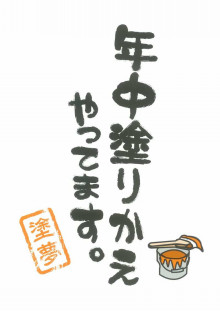 年中塗りかえ
やってます。
塗夢